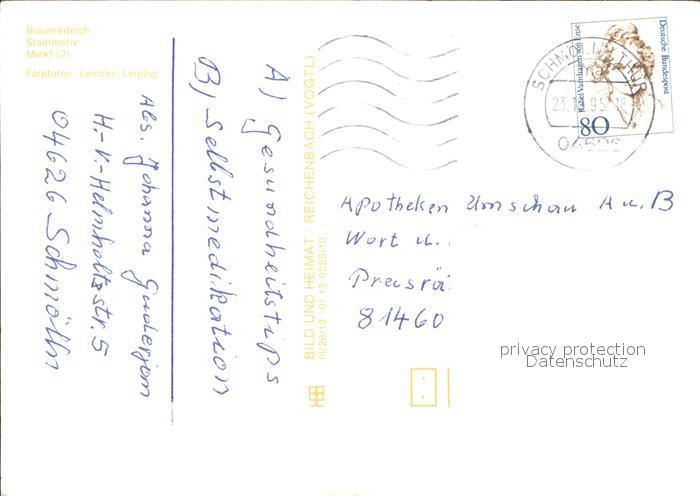 Brauereiteich
Stadtmotiv
Markt (2)
Farbfotos: Lemcke, Leipzig
Abs. Johanna
H.-v.-Helmholtzstr. 5
04626 Schmölln
A) Gesundheitstips
B) Selbstmedikation
BILD UND HEIMAT · REICHENBACH (VOGTL)
III/26/13 · 01 13 0255/10
SCHMÖLLN, THÜR
23. 95-18
04626
Deutsche Bundespost
Rahel Varnhagen von Ense
80
Apotheken Umschau A u. B
Wort u.
Preisrä
81460
privacy protection
Datenschutz